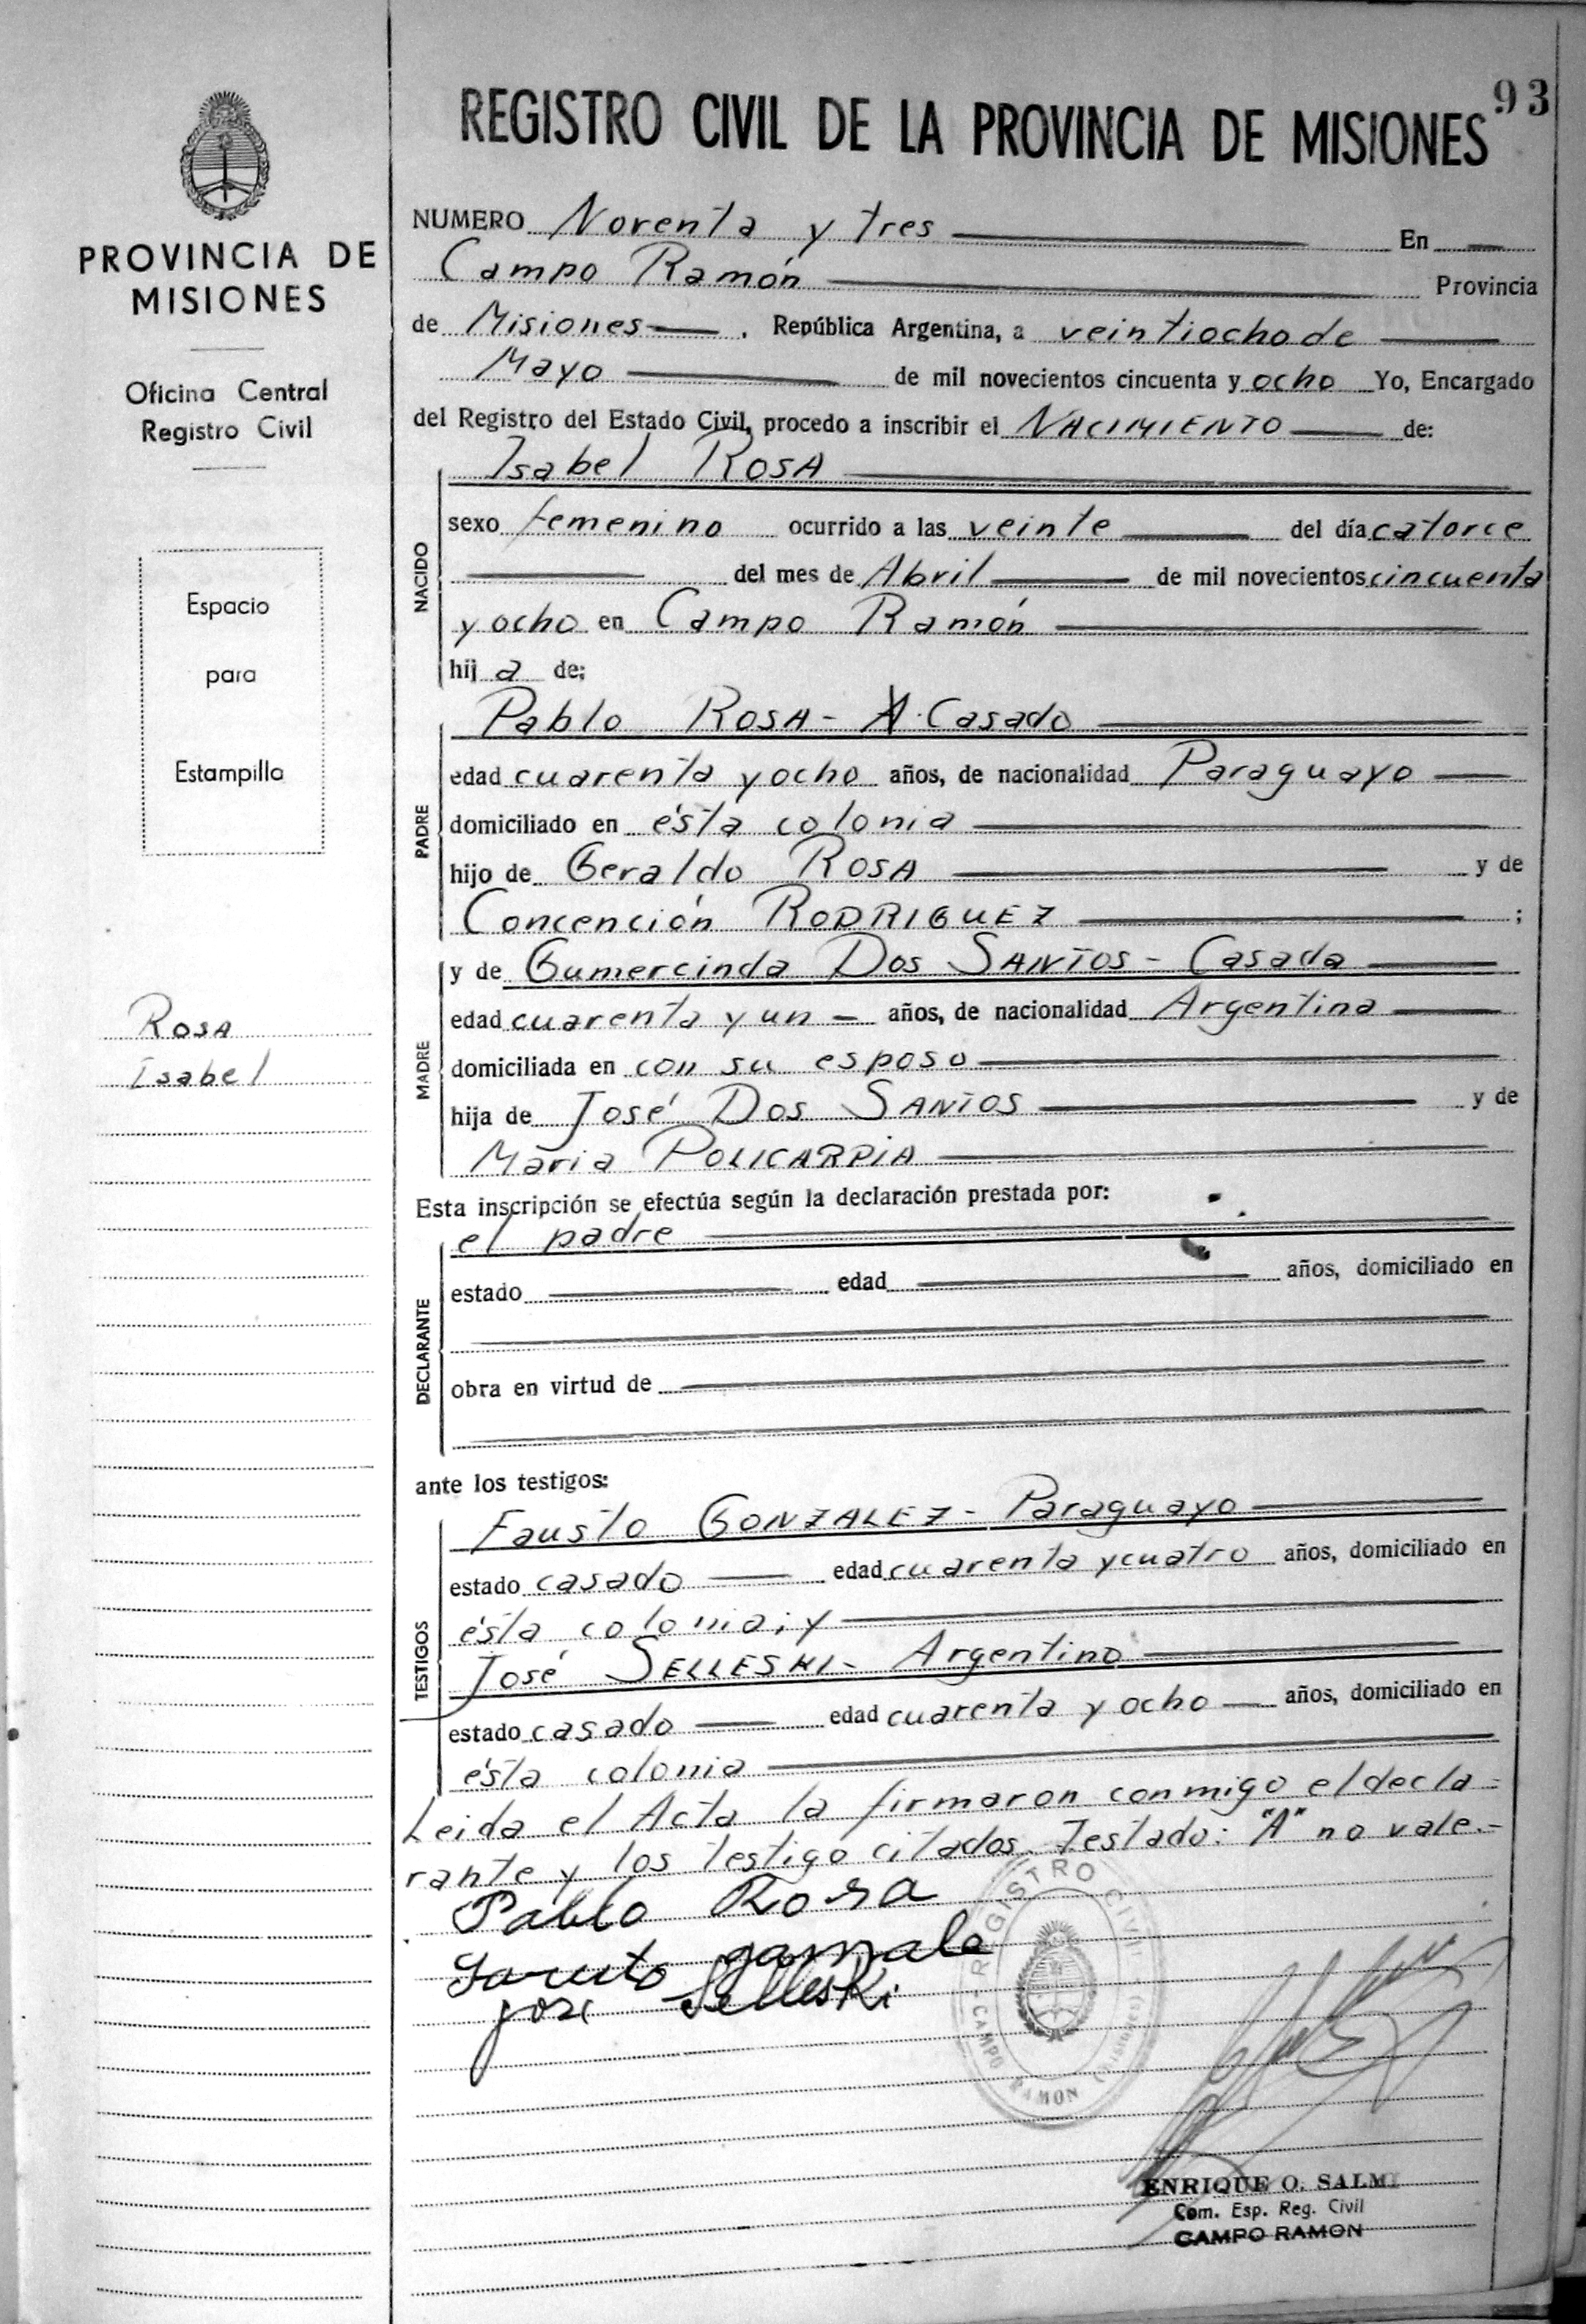 93
REGISTRO CIVIL DE LA PROVINCIA DE MISIONES
PROVINCIA DE
MISIONES
Oficina Central
Registro Civil
Espacio
para
Estampilla
Rosa
Isabel
NUMERO Noventa y tres En
Campo Ramón Provincia
de Misiones . República Argentina, a veintiocho de
Mayo de mil novecientos cincuenta y ocho Yo, Encargado
del Registro del Estado Civil, procedo a inscribir el NACIMIENTO de:
Isabel ROSA
NACIDO
sexo femenino ocurrido a las veinte del día catorce
del mes de Abril de mil novecientos cincuenta
y ocho en Campo Ramón
hij a de:
Pablo ROSA - A. Casado
PADRE
edad cuarenta y ocho años, de nacionalidad Paraguayo
domiciliado en ésta colonia
hijo de Geraldo ROSA y de
Concención RODRIGUEZ ;
y de Gumercinda Dos SANTOS - Casada
MADRE
edad cuarenta y un años, de nacionalidad Argentina
domiciliada en con su esposo
hija de José Dos SANTOS y de
Maria POLICARPIA
Esta inscripción se efectúa según la declaración prestada por:
el padre
DECLARANTE
estado edad años, domiciliado en
obra en virtud de
ante los testigos:
Fausto GONZALEZ - Paraguayo
TESTIGOS
estado casado edad cuarenta y cuatro años, domiciliado en
ésta colonia; y
José SELLESKI - Argentino
estado casado edad cuarenta y ocho años, domiciliado en
ésta colonia
Leida el Acta la firmaron conmigo el decla-
rante y los testigo citados. Testado: "A" no vale.-
Pablo Rosa
José Selleski
REGISTRO CIVIL
CAMPO RAMON (Misiones)
ENRIQUE O. SALMI
Com. Esp. Reg. Civil
CAMPO RAMON